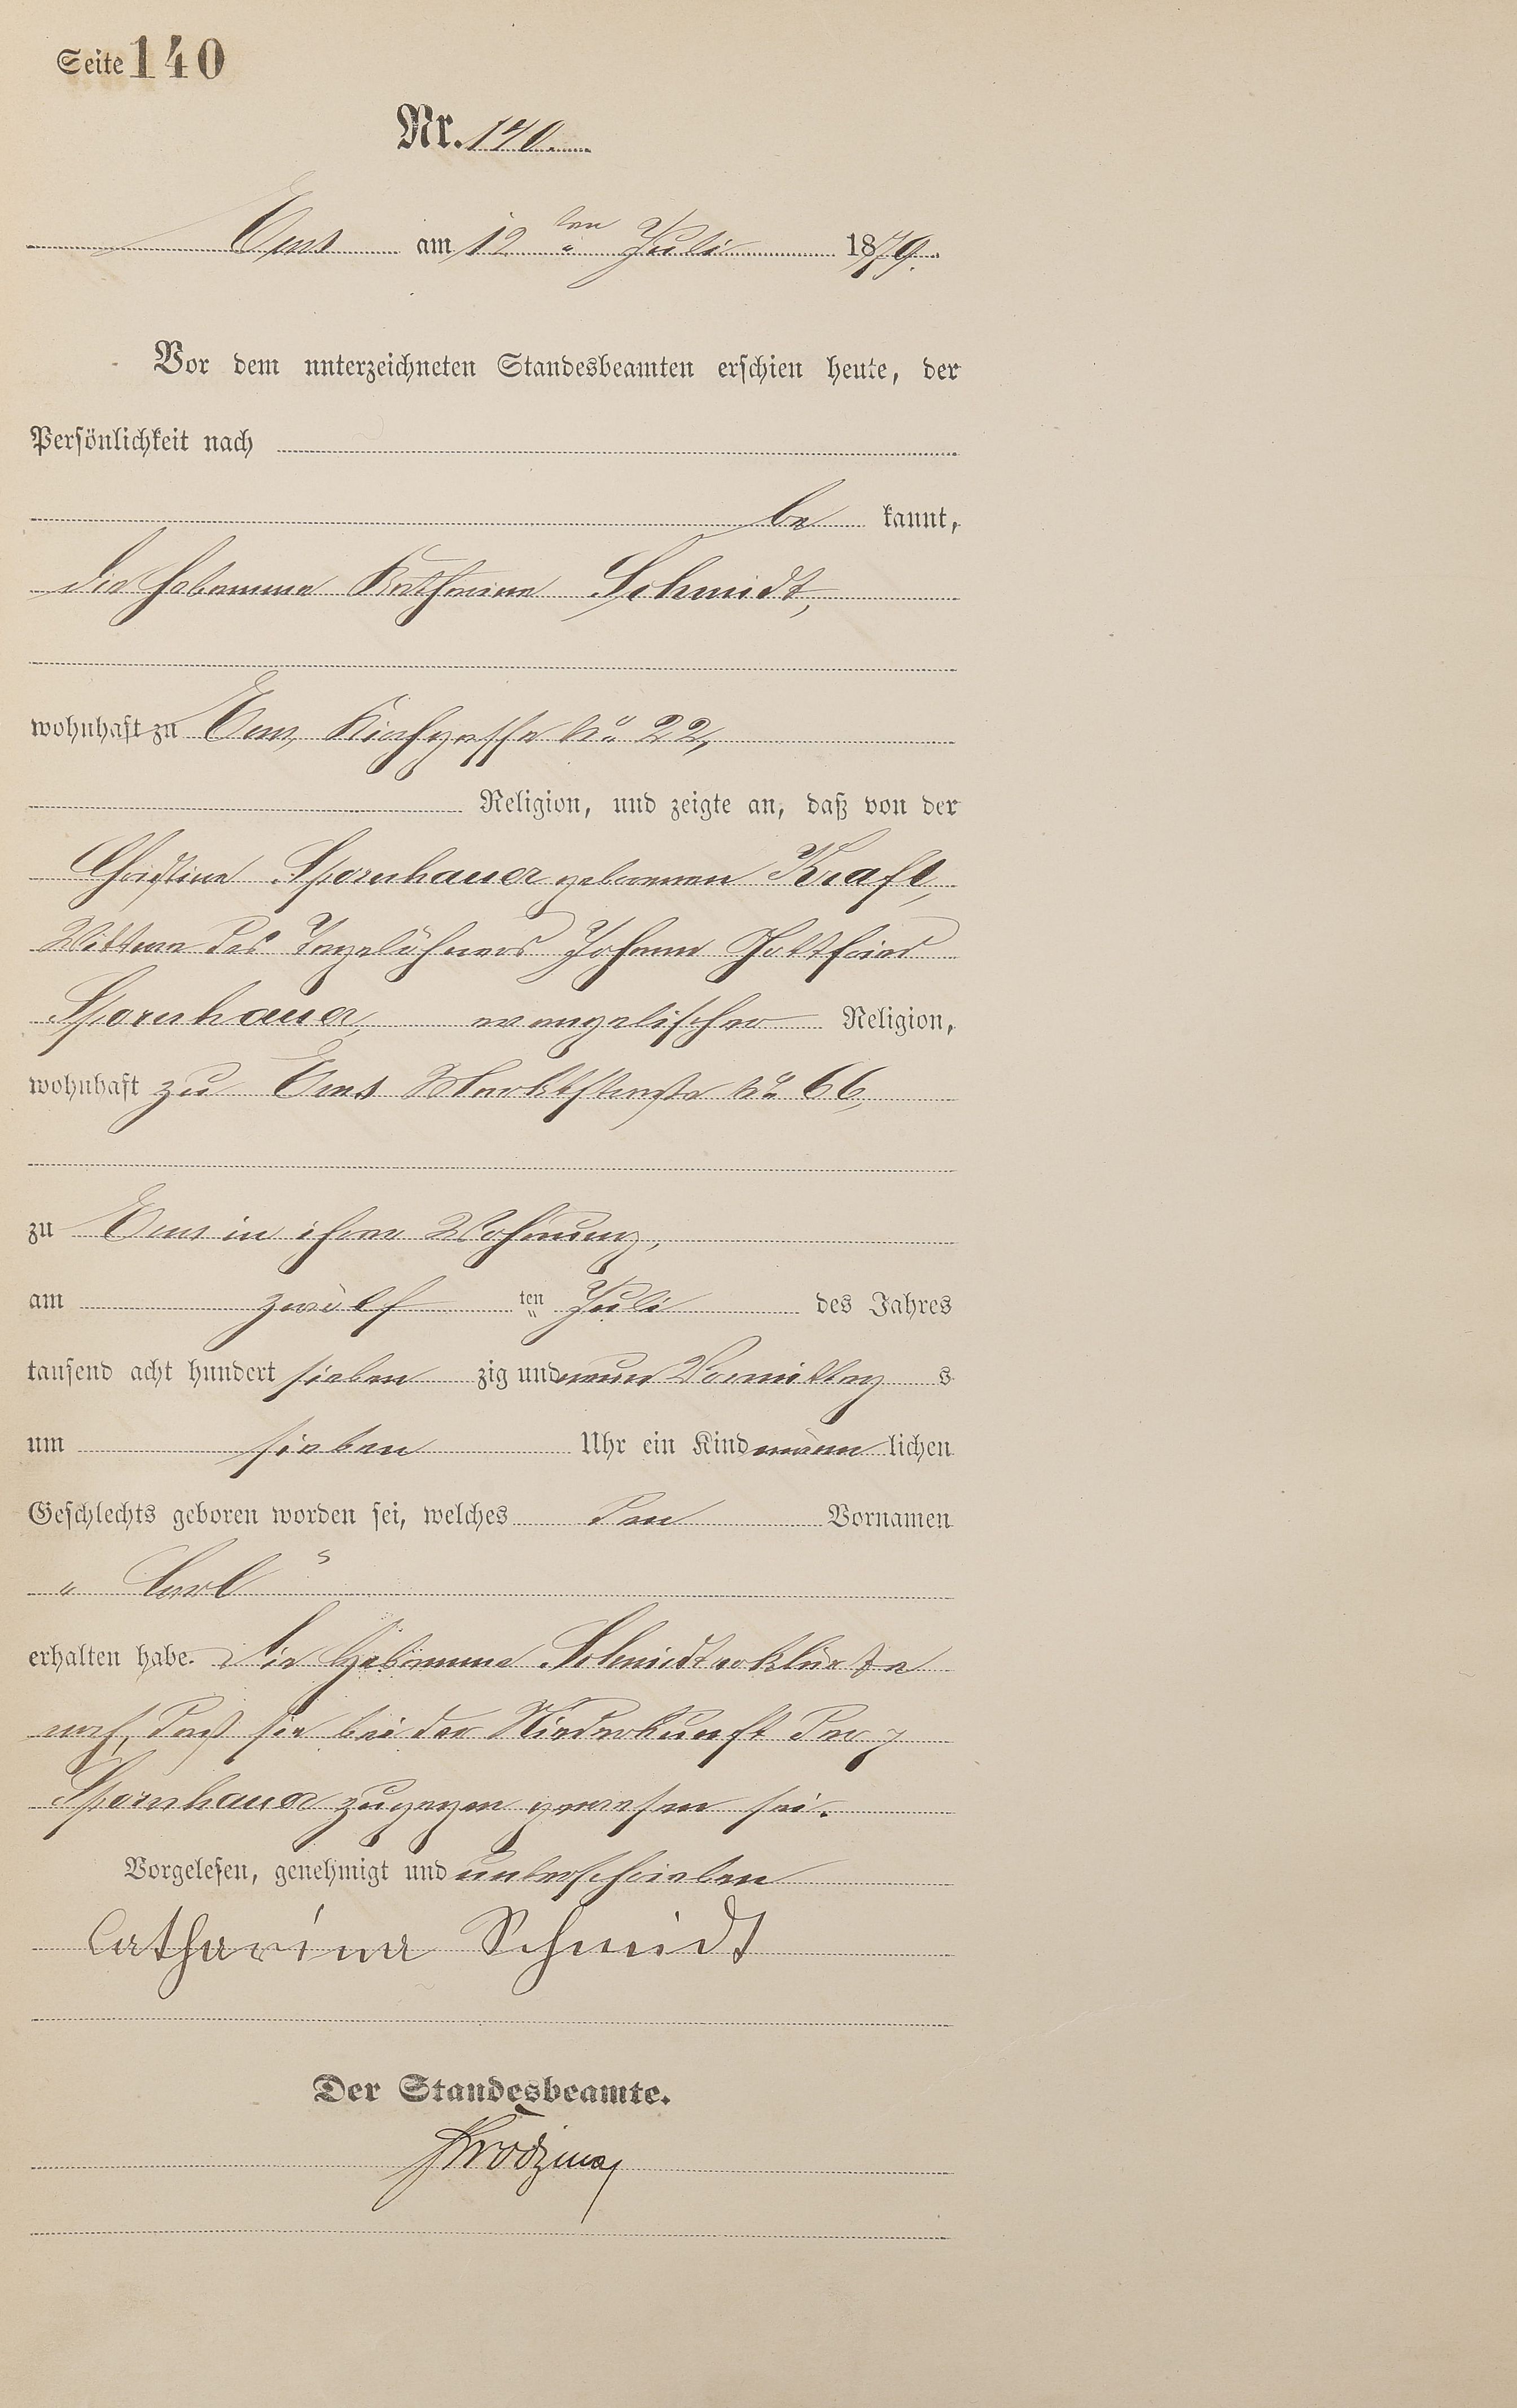 Seite 140
Nr. 140.
Ems am 12 ten Juli 1879.
Vor dem unterzeichneten Standesbeamten erschien heute, der
Persönlichkeit nach
be kannt,
die Hebamme Katharina Schmidt,
wohnhaft zu Ems, Kirchgasse No 22,
Religion, und zeigte an, daß von der
Christine Spornhauer geborenen Kraft,
Wittwe des Tagelöhners Johann Gottfried
Spornhauer, evangelischer Religion,
wohnhaft zu Ems Marktstraße No 66,
zu Ems in ihrer Wohnung,
am zwölf ten Juli des Jahres
tausend acht hundert sieben zig und neun Vormittag s
um sieben Uhr ein Kind männ lichen
Geschlechts geboren worden sei, welches den Vornamen
" Carl "
erhalten habe. Die Hebamme Schmidt erklärte
noch, daß sie bei der Niederkunft der
Spornhauer zugegen gewesen sei.
Vorgelesen, genehmigt und unterschrieben
Catharina Schmidt
Der Standesbeamte.